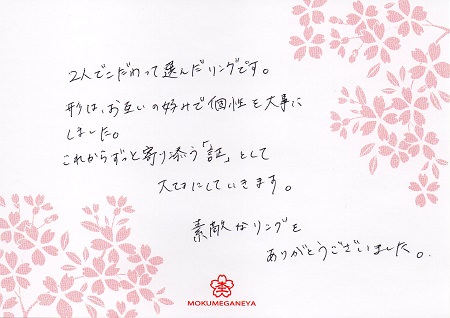 2人でこだわって選んだリングです。
形は、お互いの好みで個性を大事に
しました。
これからずっと寄り添う「証」として
大切にしていきます。
素敵なリングを
ありがとうございました。
MOKUMEGANEYA